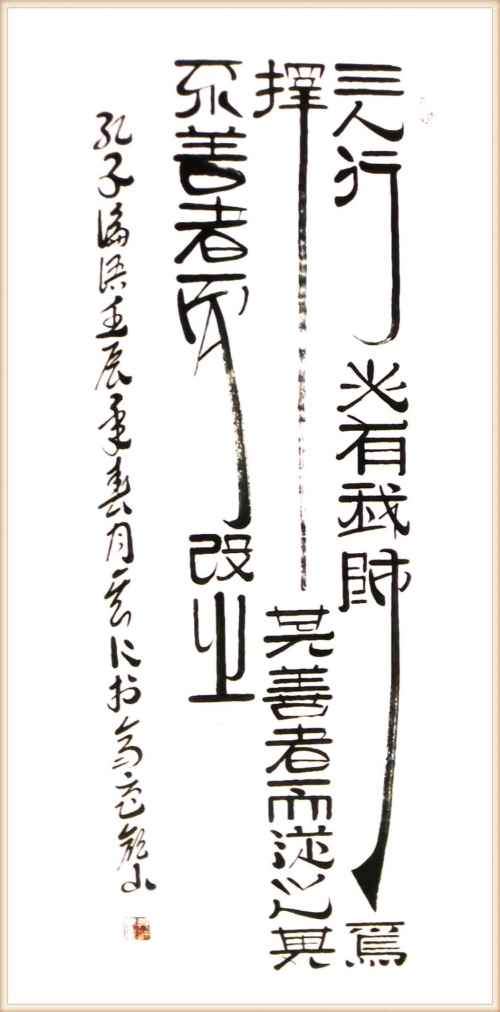 三人行必有我師焉
擇其善者而從之其
不善者而改之
孔子論語壬辰年春月